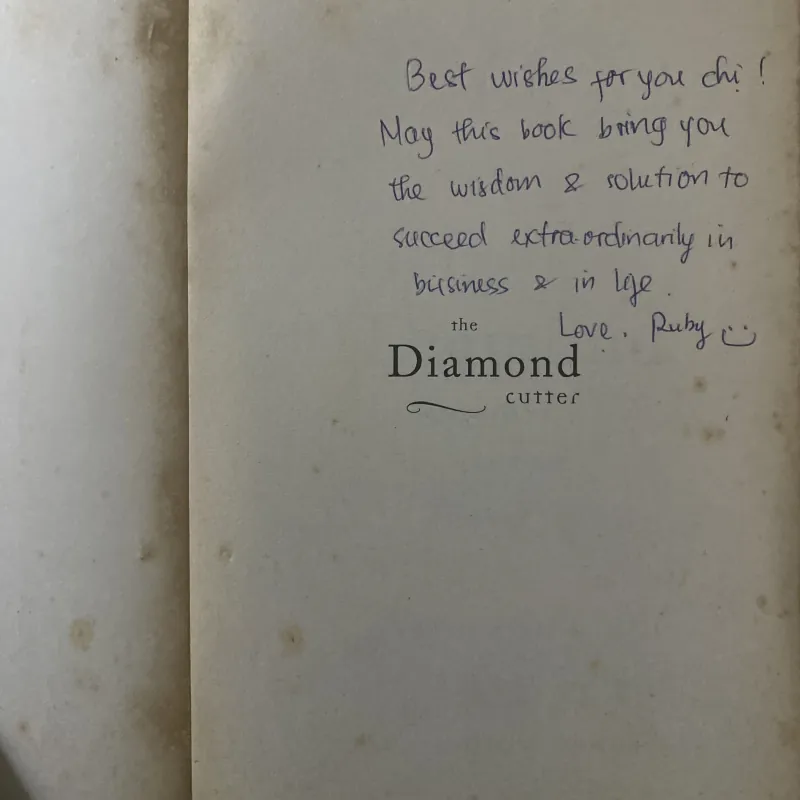 Best wishes for you chị !
May this book bring you
the wisdom & solution to
succeed extra-ordinarily in
business & in life.
Love, Ruby
the
Diamond
cutter